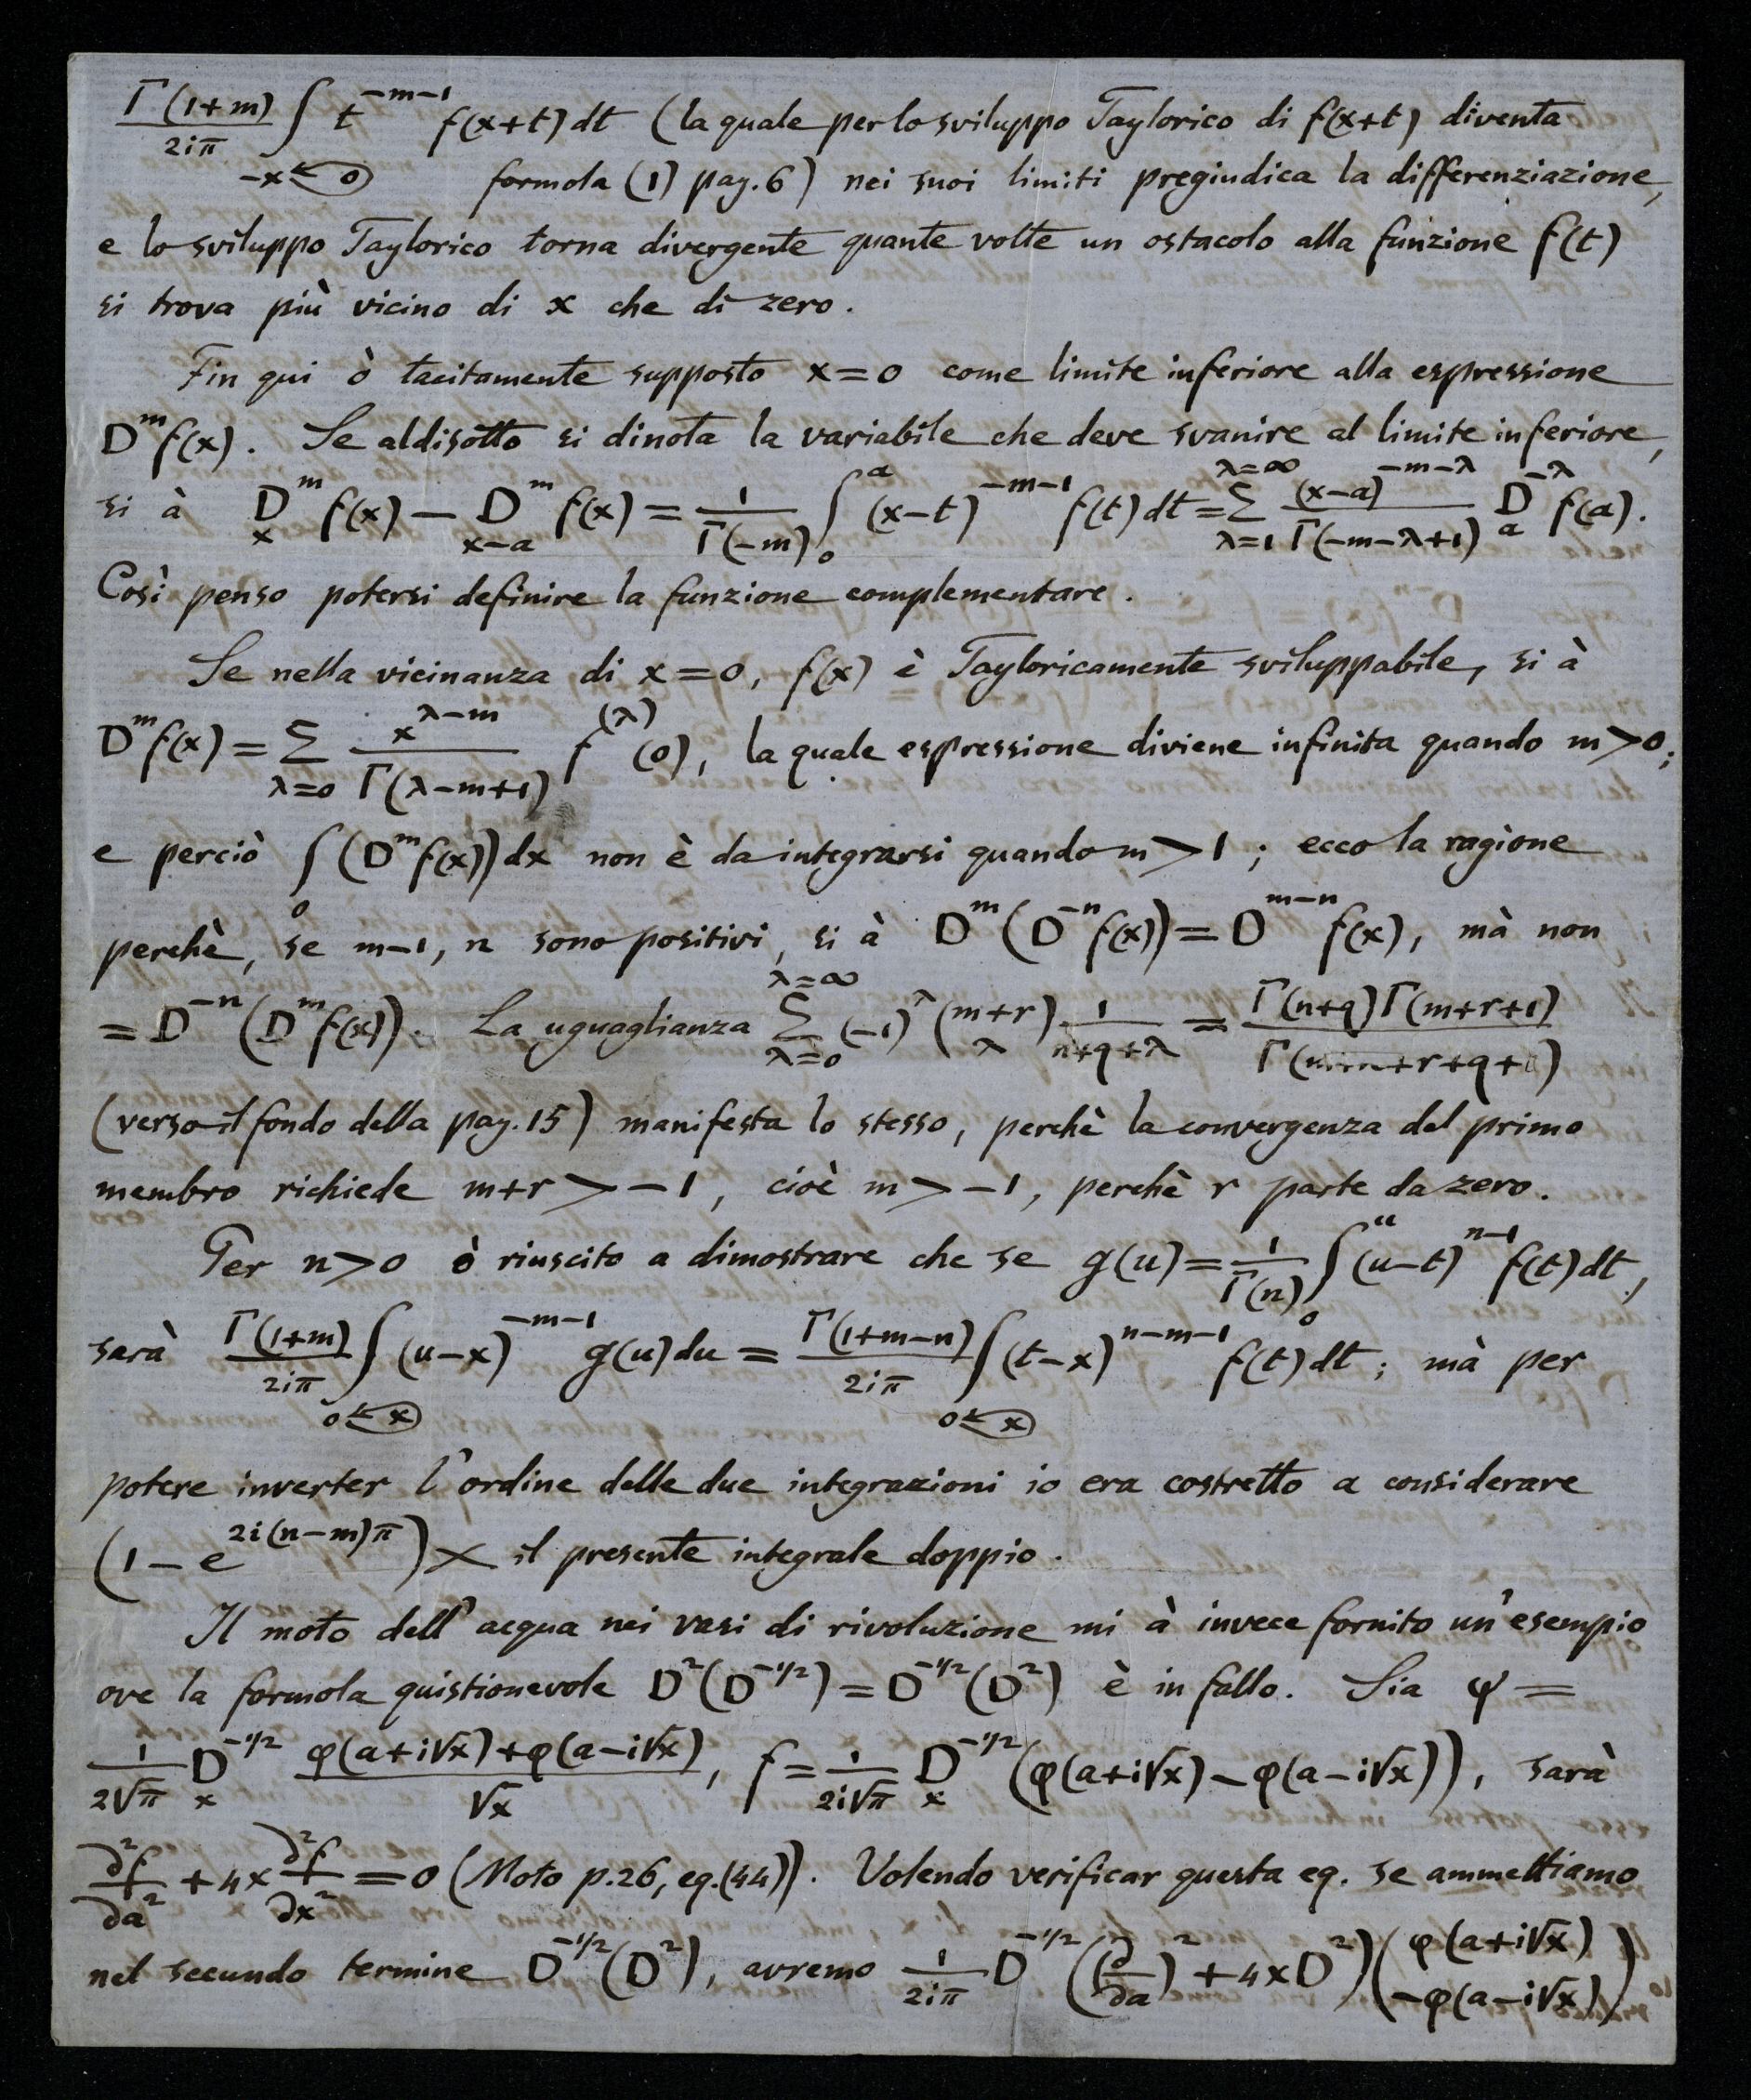 Γ(1+m)/2iπ ∫_{-x ← 0} t^{-m-1} f(x+t) dt (la quale per lo sviluppo Taylorico di f(x+t) diventa
formola (1) pag. 6) nei suoi limiti pregiudica la differenziazione,
e lo sviluppo Taylorico torna divergente quante volte un ostacolo alla funzione f(t)
si trova più vicino di x che di zero.
Fin qui ò tacitamente supposto x=0 come limite inferiore alla espressione
D^m f(x). Se aldisotto si dinota la variabile che deve svanire al limite inferiore,
si à D_x^m f(x) − D_{x−a}^m f(x) = 1/Γ(−m) ∫_0^a (x−t)^{−m−1} f(t) dt = Σ_{λ=1}^{λ=∞} (x−a)^{−m−λ}/Γ(−m−λ+1) D_a^{−λ} f(a).
Così penso potersi definire la funzione complementare.
Se nella vicinanza di x=0, f(x) è Tayloricamente sviluppabile, si à
D^m f(x) = Σ_{λ=0} x^{λ−m}/Γ(λ−m+1) f^{(λ)}(0), la quale espressione diviene infinita quando m>0;
e perciò ∫_0 (D^m f(x)) dx non è da integrarsi quando m>1; ecco la ragione
perchè, se m−1, n sono positivi, si à D^m (D^{−n} f(x)) = D^{m−n} f(x), mà non
= D^{−n} (D^m f(x)). La uguaglianza Σ_{λ=0}^{λ=∞} (−1)^λ (m+r λ) 1/n+q+λ = Γ(n+q)Γ(m+r+1)/Γ(m+n+r+q+1)
(verso il fondo della pag. 15) manifesta lo stesso, perchè la convergenza del primo
membro richiede m+r > −1, cioè m > −1, perchè r parte da zero.
Per n>0 ò riuscito a dimostrare che se g(u) = 1/Γ(n) ∫_0^u (u−t)^{n−1} f(t) dt,
sarà Γ(1+m)/2iπ ∫_{0 ← x} (u−x)^{−m−1} g(u) du = Γ(1+m−n)/2iπ ∫_{0 ← x} (t−x)^{n−m−1} f(t) dt; mà per
potere inverter l'ordine delle due integrazioni io era costretto a considerare
(1 − e^{2i(n−m)π}) × il presente integrale doppio.
Il moto dell'acqua nei vasi di rivoluzione mi à invece fornito un'esempio
ove la formola quistionevole D^2(D^{−1/2}) = D^{−1/2}(D^2) è in fallo. Sia ψ =
1/2√π D_x^{−1/2} φ(a+i√x)+φ(a−i√x)/√x, f = 1/2i√π D_x^{−1/2} (φ(a+i√x) − φ(a−i√x)), sarà
∂²f/∂a² + 4x ∂²f/∂x² = 0 (Moto p. 26, eq. (44)). Volendo verificar questa eq. se ammettiamo
nel secundo termine D^{−1/2}(D^2), avremo 1/2iπ D^{−1/2} ((∂/∂a)² + 4xD²) (φ(a+i√x) −φ(a−i√x))